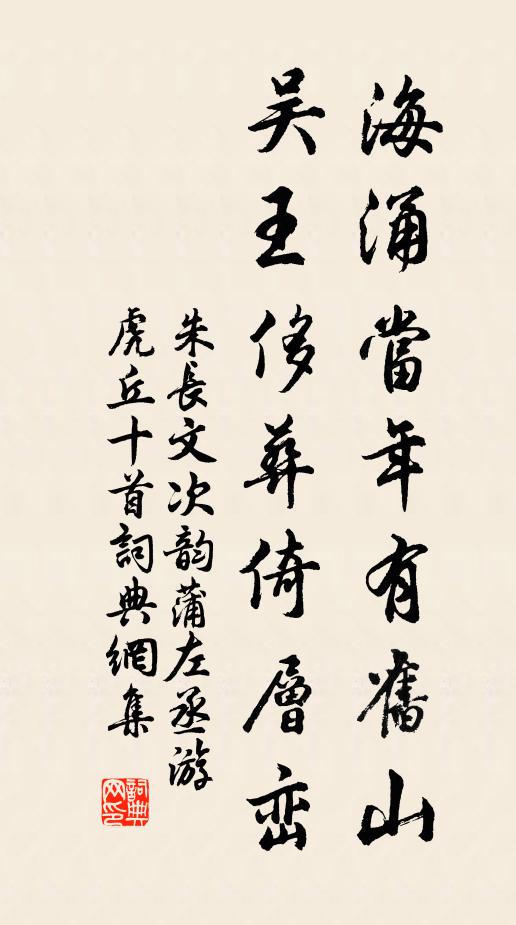 海涌當年有舊山
吴王侈葬倚層峦
朱長文次韵蒲左丞游
虎丘十首詞典網集
詞典
网印